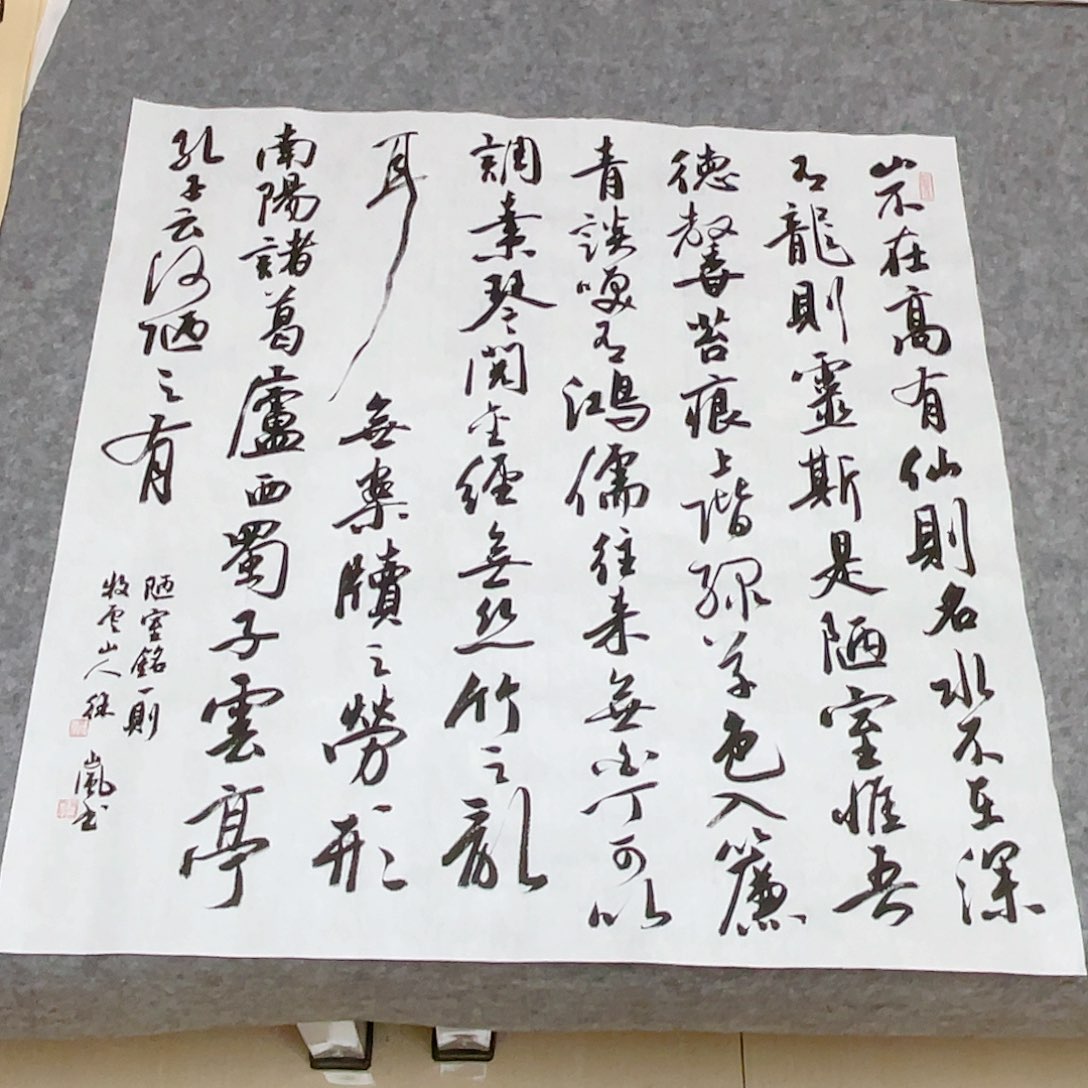 山不在高有仙則名水不在深
有龍則靈斯是陋室惟吾
徳馨苔痕上階綠草色入簾
青談笑有鴻儒往来無白丁可以
調素琴閱金經無丝竹之亂
耳無案牘之勞形
南陽諸葛廬西蜀子雲亭
孔子云何陋之有
陋室銘一則
牧雲山人徐嵐书